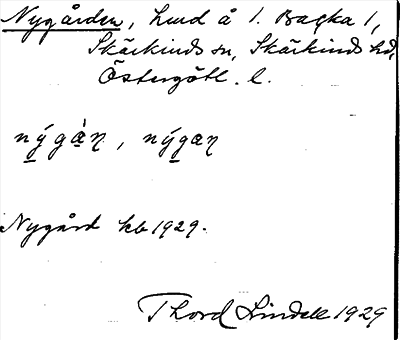 Nygården, hmd å 1. Backa 1,
Skärkinds sn, Skärkinds hd,
Östergötl. l.
nýgàn, nýgan
Nygård kb 1929.
Thord Lindell 1929